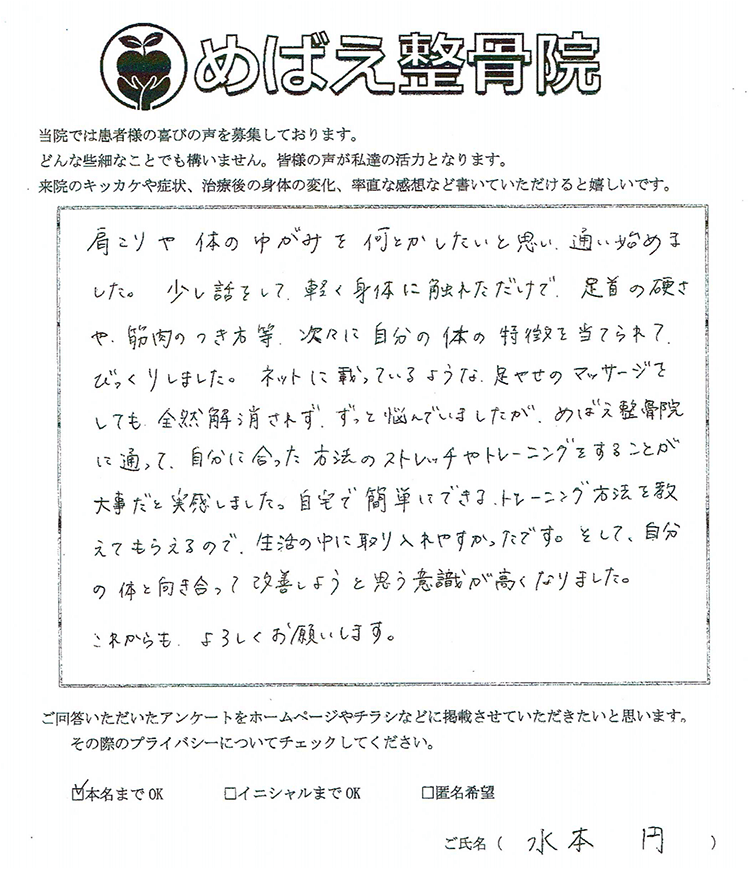 めばえ整骨院
当院では患者様の喜びの声を募集しております。
どんな些細なことでも構いません。皆様の声が私達の活力となります。
来院のキッカケや症状、治療後の身体の変化、率直な感想など書いていただけると嬉しいです。
肩こりや体のゆがみを何とかしたいと思い、通い始めま
した。少し話をして、軽く身体に触れただけで、足首の硬さ
や、筋肉のつき方等、次々に自分の体の特徴を当てられて、
びっくりしました。ネットに載っているような、足やせのマッサージを
しても、全然解消されず、ずっと悩んでいましたが、めばえ整骨院
に通って、自分に合った方法のストレッチやトレーニングをすることが
大事だと実感しました。自宅で簡単にできる、トレーニング方法を教
えてもらえるので、生活の中に取り入れやすかったです。そして、自分
の体と向き合って改善しようと思う意識が高くなりました。
これからも、よろしくお願いします。
ご回答いただいたアンケートをホームページやチラシなどに掲載させていただきたいと思います。
その際のプライバシーについてチェックしてください。
☑本名までOK □イニシャルまでOK □匿名希望
ご氏名（ 水本 円 ）